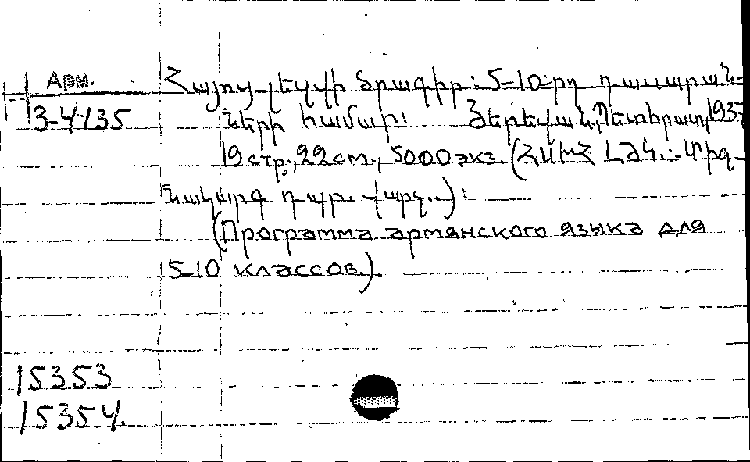 Арм.
3-4135
Հայոց լեզվի ծրագիր: 5-10-րդ դասարան-
ների համար: Յերեվան, Պետհրատ, 1937
19 стр., 22 см., 5000 экз. (ՀՍԽՀ ԼԺԿ.: Միջ-
նակարգ դպր. վարչ.):
(Программа армянского языка для
5-10 классов).
15353
15354.